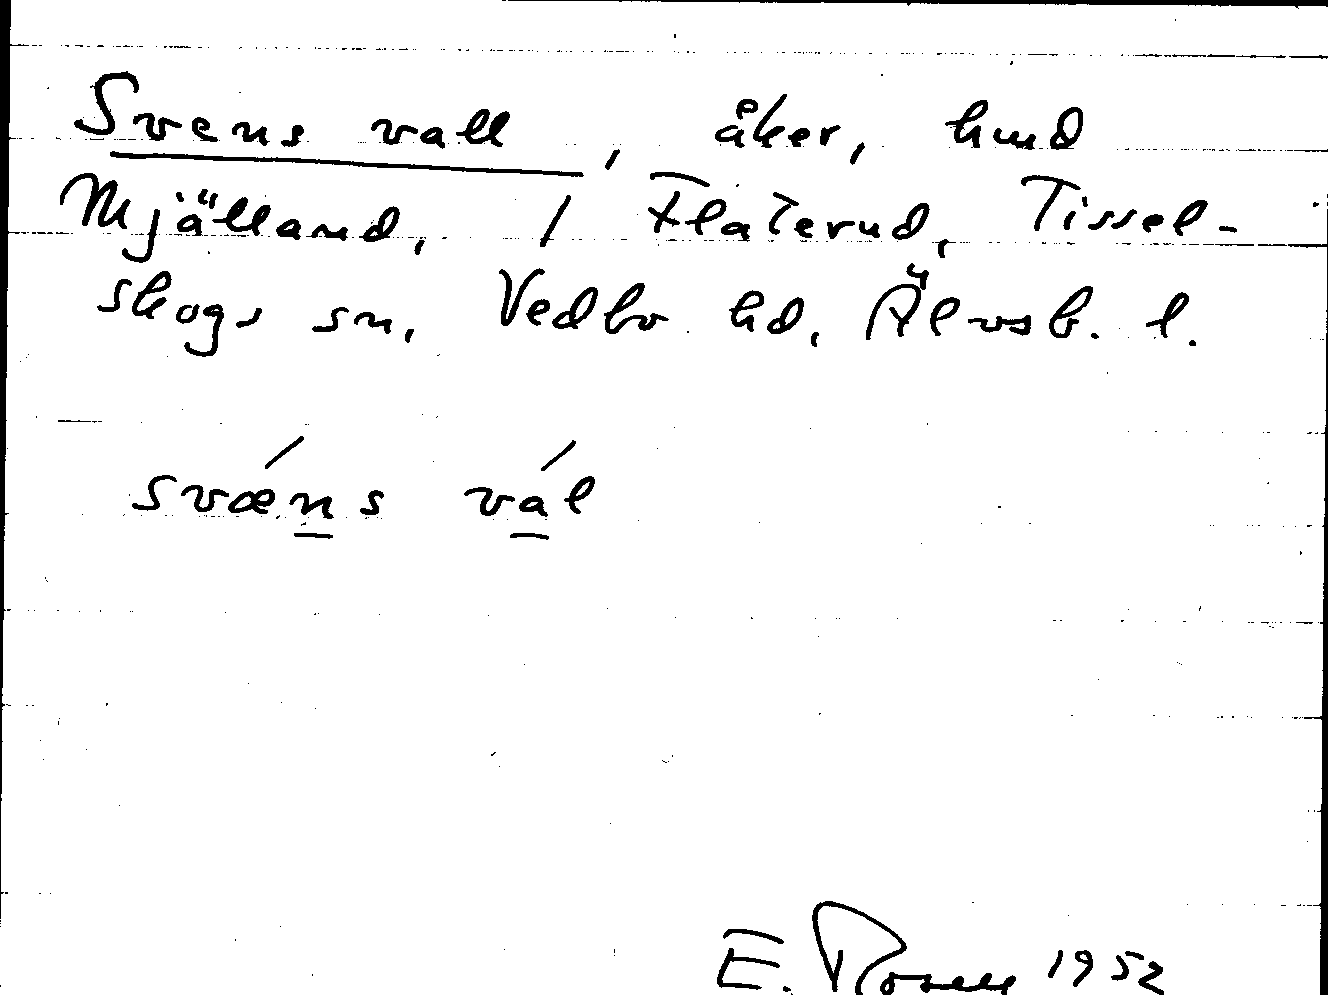 Svens vall, åker, hmd
Mjälland, 1/ Flaterud, Tissel-
skogs sn, Vedbo hd, Älvsb. l.
svæ´ns vál
E. Rosell 1952